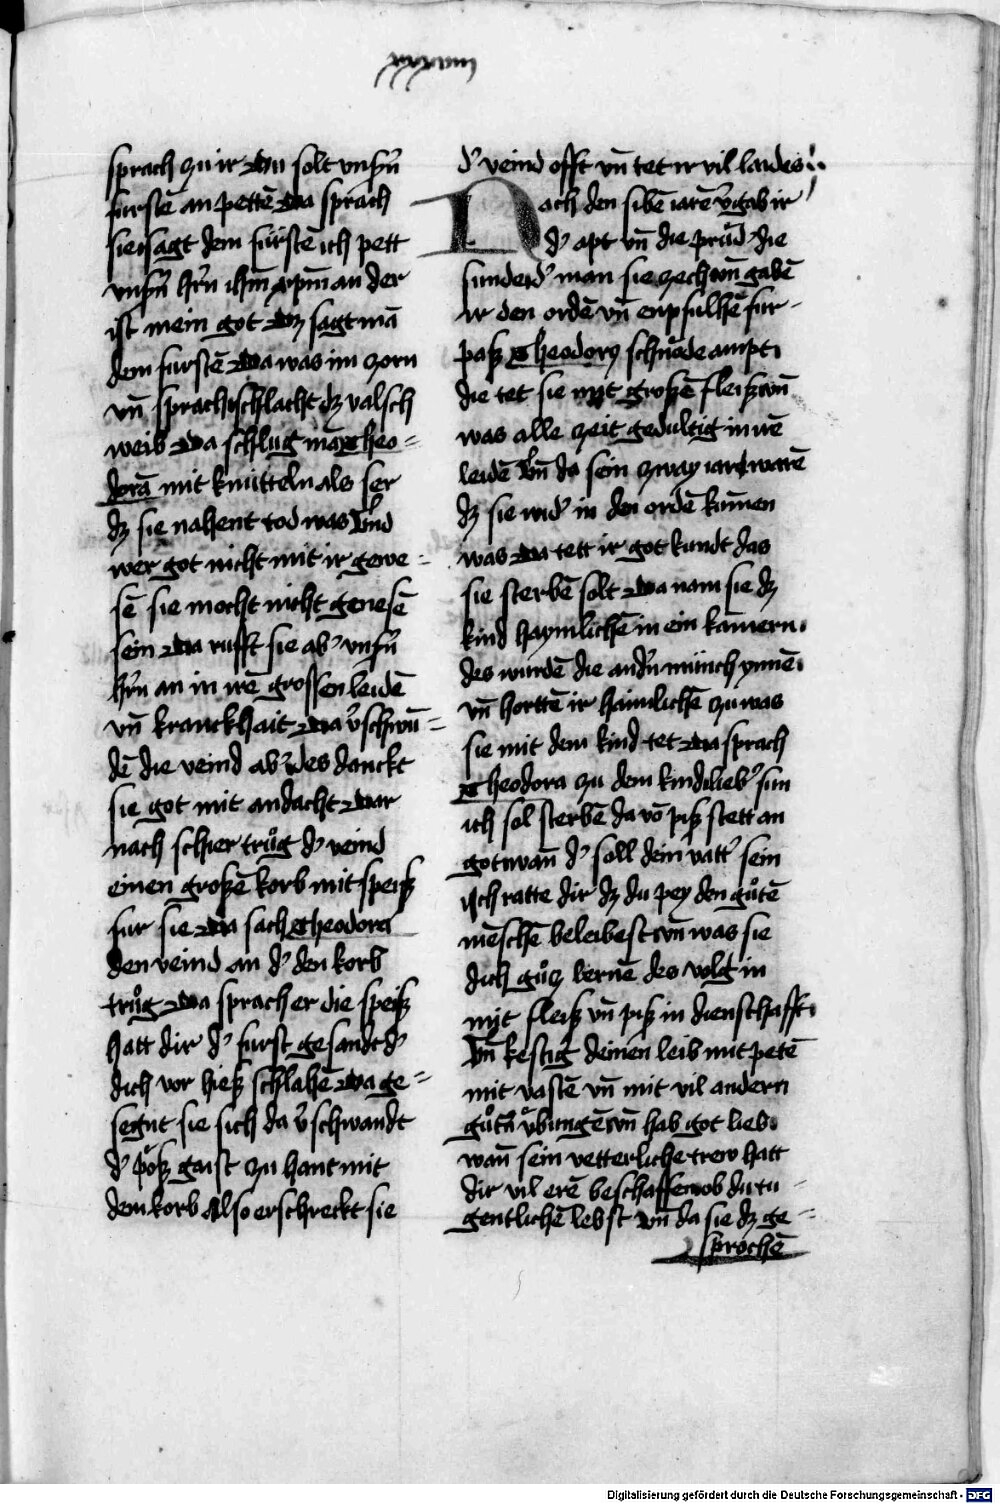 xxxviii
sprach zu ir Du solt vnsern̄
fursten̄ an petten̄ Da sprach
sie sagt dem fürsten̄ ich pett
vnsern̄ hern̄ ihm̄ xpm̄ an der
ist mein got Dz sagt mā
dem fursten̄ Da was im zorn
vn̄ sprach schlacht dz valsch
weib Da schlug mā Theo-
dorā mit knütteln als ser
dz sie nahent tod was Vnd
wer got nicht mit ir gewe-
sē sie mocht nicht genesē
sein Da rufft sie ab' vnsern̄
hern̄ an in irē grossen leidē
vn̄ kranckhait Da v'schwū-
dē die veind ab' des danckt
sie got mit andacht Dar
nach schier trůg d' veind
einen großē korb mit speiß
fur sie Da sach Theodora
den veind an d' den korb
trůg Da sprach er die speiß
hatt dir d' furst gesandt d'
dich vor hieß schlahē Da ge-
segnt sie sich da v'schwandt
d' pöß gaist zu hant mit
dem korb Also erschreckt sie
d' veind offt vn̄ tet ir vil laides
Nach den sibē iarē v'gab ir
d' apt vn̄ die prüd' die
sunderd' man sie zech vn̄ gabē
ir den ordē vn̄ enpfulhē fur-
paß Theodory schnöde ampt
die tet sie mit großē fleiß vn̄
was alle zeit gedultig in irē
leidē Vn̄ da sein zway iar warē
dz sie wid' in den ordē kumen
was Da tett ir got kundt das
sie sterbē solt Da nam sie dz
kind haymlichē in ein kamern
des wurdē die andn̄ münich ynnē
vn̄ hortē ir haimlichē zu was
sie mit dem kind tet Da sprach
Theodora zu dem kind lieb' sun
ich sol sterbē da vō piß stett an
got wan̄ d' soll dein vatt' sein
ich ratte dir dz du pey den gůtē
mēschē beleibest vn̄ was sie
dich gůtz lernē des volg in
mit fleiß vn̄ piß in dienschafft
Vn̄ kestig deinen leib mit petē
mit vastē vn̄ mit vil andern
gůtn̄ übungē vn̄ hab got lieb
wan̄ sein vetterliche trew hatt
dir vil erē beschaffen ob du tu-
gentlichē lebst Vn̄ da sie dz ge-
sprochē
Digitalisierung gefördert durch die Deutsche Forschungsgemeinschaft - DFG